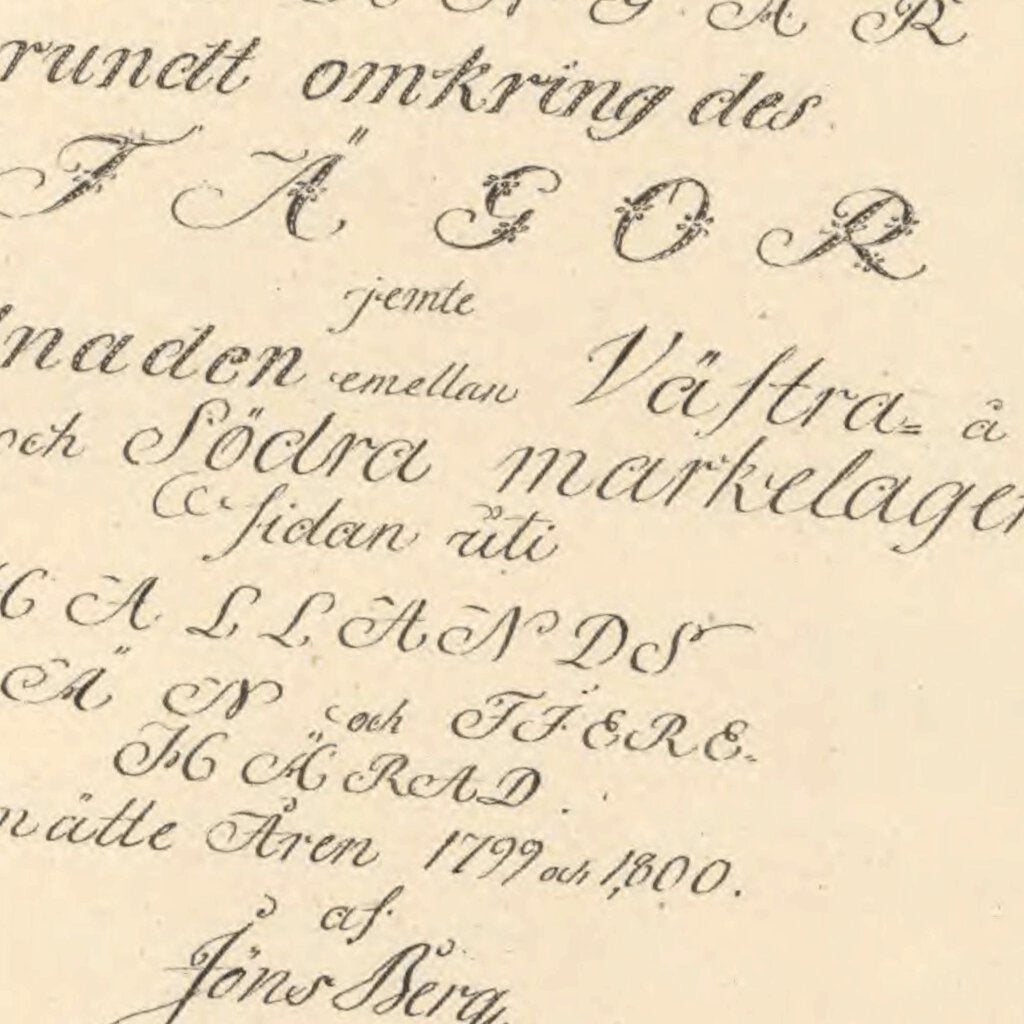 N G A R
rundtt omkring des
T Ä G O R
jemte
naden emellan Väſtra= å
och Södra markelagen
ſidan uti
H A L L A N D S
Ä N och TJERE=
H Ä R A D.
mätte Åren 1799 och 1800.
af
Jöns Berg